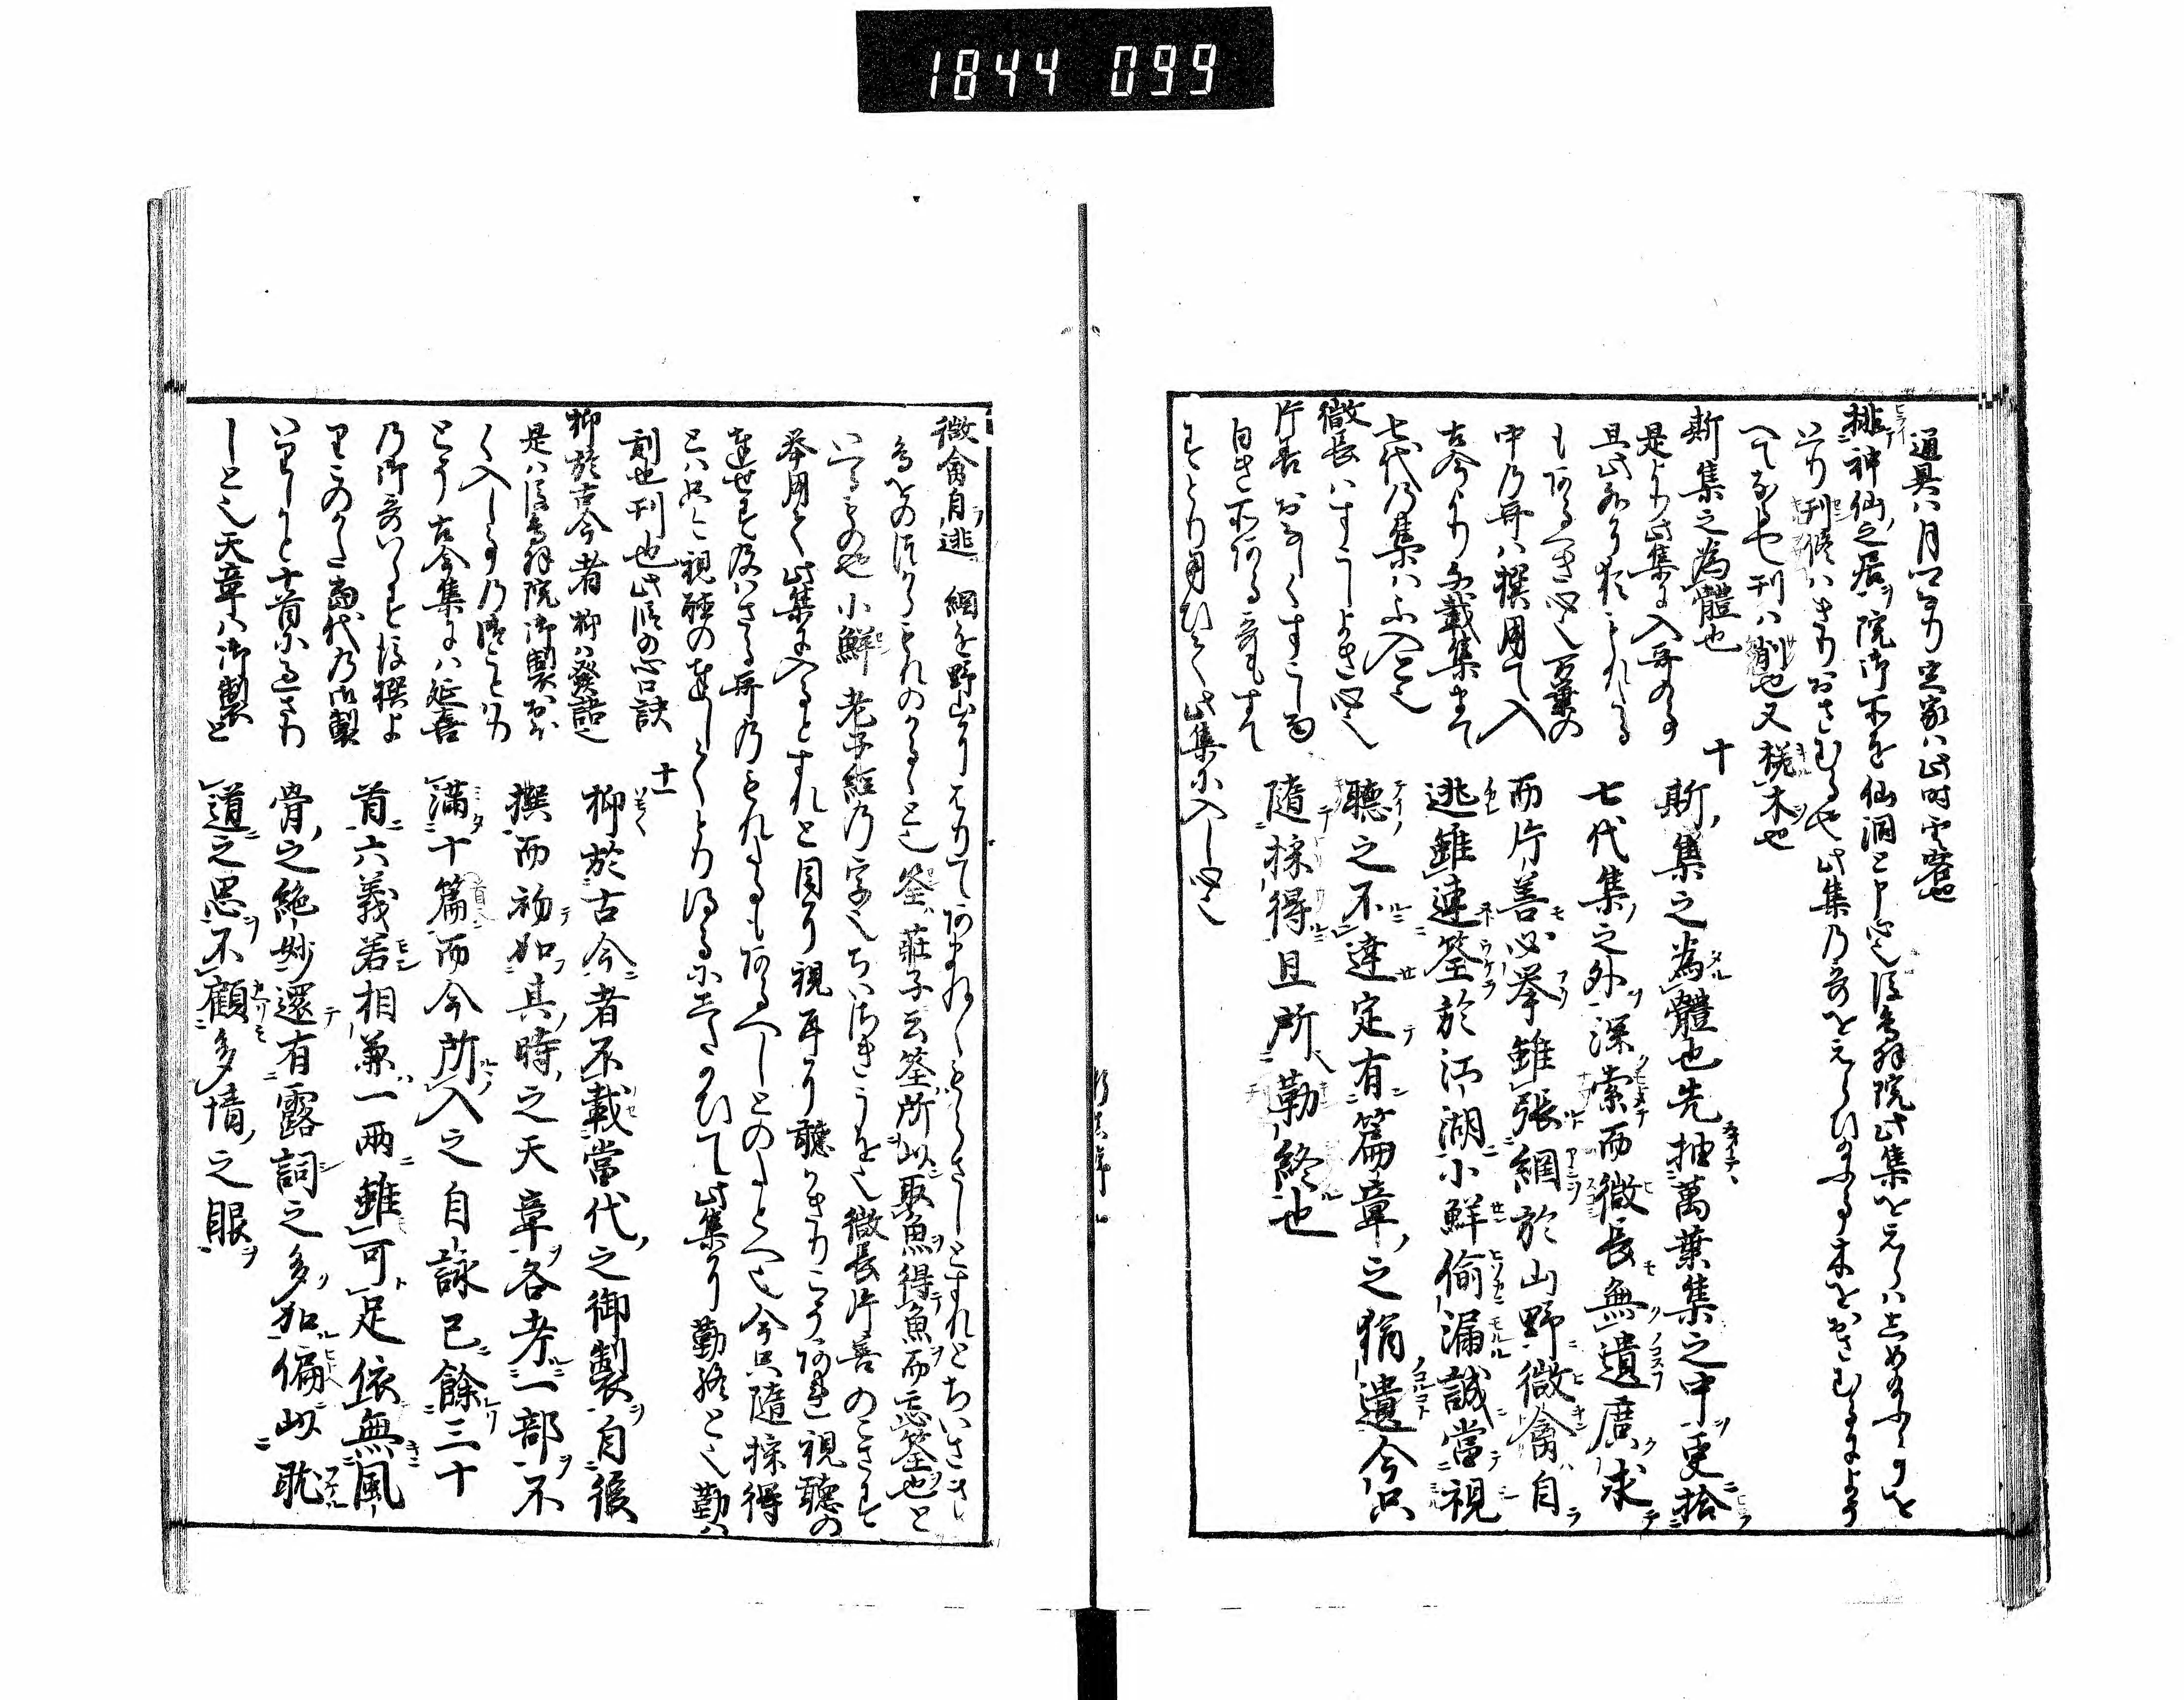 1844 099
通具ハ月卿なり定家ハ此時雲客也
排神仙之居 院御所を仙洞と申心也後鳥羽院此集をえらハしめ給ふことを
いへり刊脩ハきりおさむる也此集乃哥をえらひ給ふる木をおさむるによそ
へてなり也刊ハ削也又槎木也
斯集之為體也
是より此集に入哥の事
且此外に猶もれたる
もあるへき心也万葉の
中乃哥ハ撰用て入
古今より千載集まて
七代乃集ハ不入と也
微長ハすこしよき心也
片善おなしくすこしの
白き所ある哥もすて
すとり用ひて此集に入し心也
十
斯集之為體也先抽萬葉集之中更拾
七代集之外深索而微長無遺廣求
而片善必挙雖張網於山野微禽自
逃雖連筌於江湖小鮮偷漏誠當視
聽之不達定有篇章之猶遺今只
隨採得且所勒終也
微禽自逃 網を野山にはりてあまねくもらさしとすれとちいさき
鳥なとのをのつからもれのかるゝと也筌莊子云筌所以取魚得魚而忘筌也と
いへるもの也小鮮老子経乃字也ちいさきうを也微長片善のこさす
挙用て此集に入るとすれと目に視耳に聽かきりこそあれ視聽の
達せす及ハさる哥乃もれたるもあるへしとのたとへ也今只隨採得
とハ只今視聽の達してとり得るにしたかひて此集に勒終と也勒ハ
刻也刊也此段の心口訣
抑於古今者 抑ハ發語也
是ハ後鳥羽院御製おほ
く入し事乃儀ことわり
とそ古今集にハ延喜
乃御哥いらす後撰よ
りこのかた當代乃御製
いりしと十首にみさり
しと也天章ハ御製と
十一
抑於古今者不載當代之御製自後
撰而初加其時之天章各考一部不
滿十篇而今所入之自詠已餘三十
首六義若相兼一兩雖可足依無風
骨之絶妙還有露詞之多加偏以耽
道之思不顧多情之眼